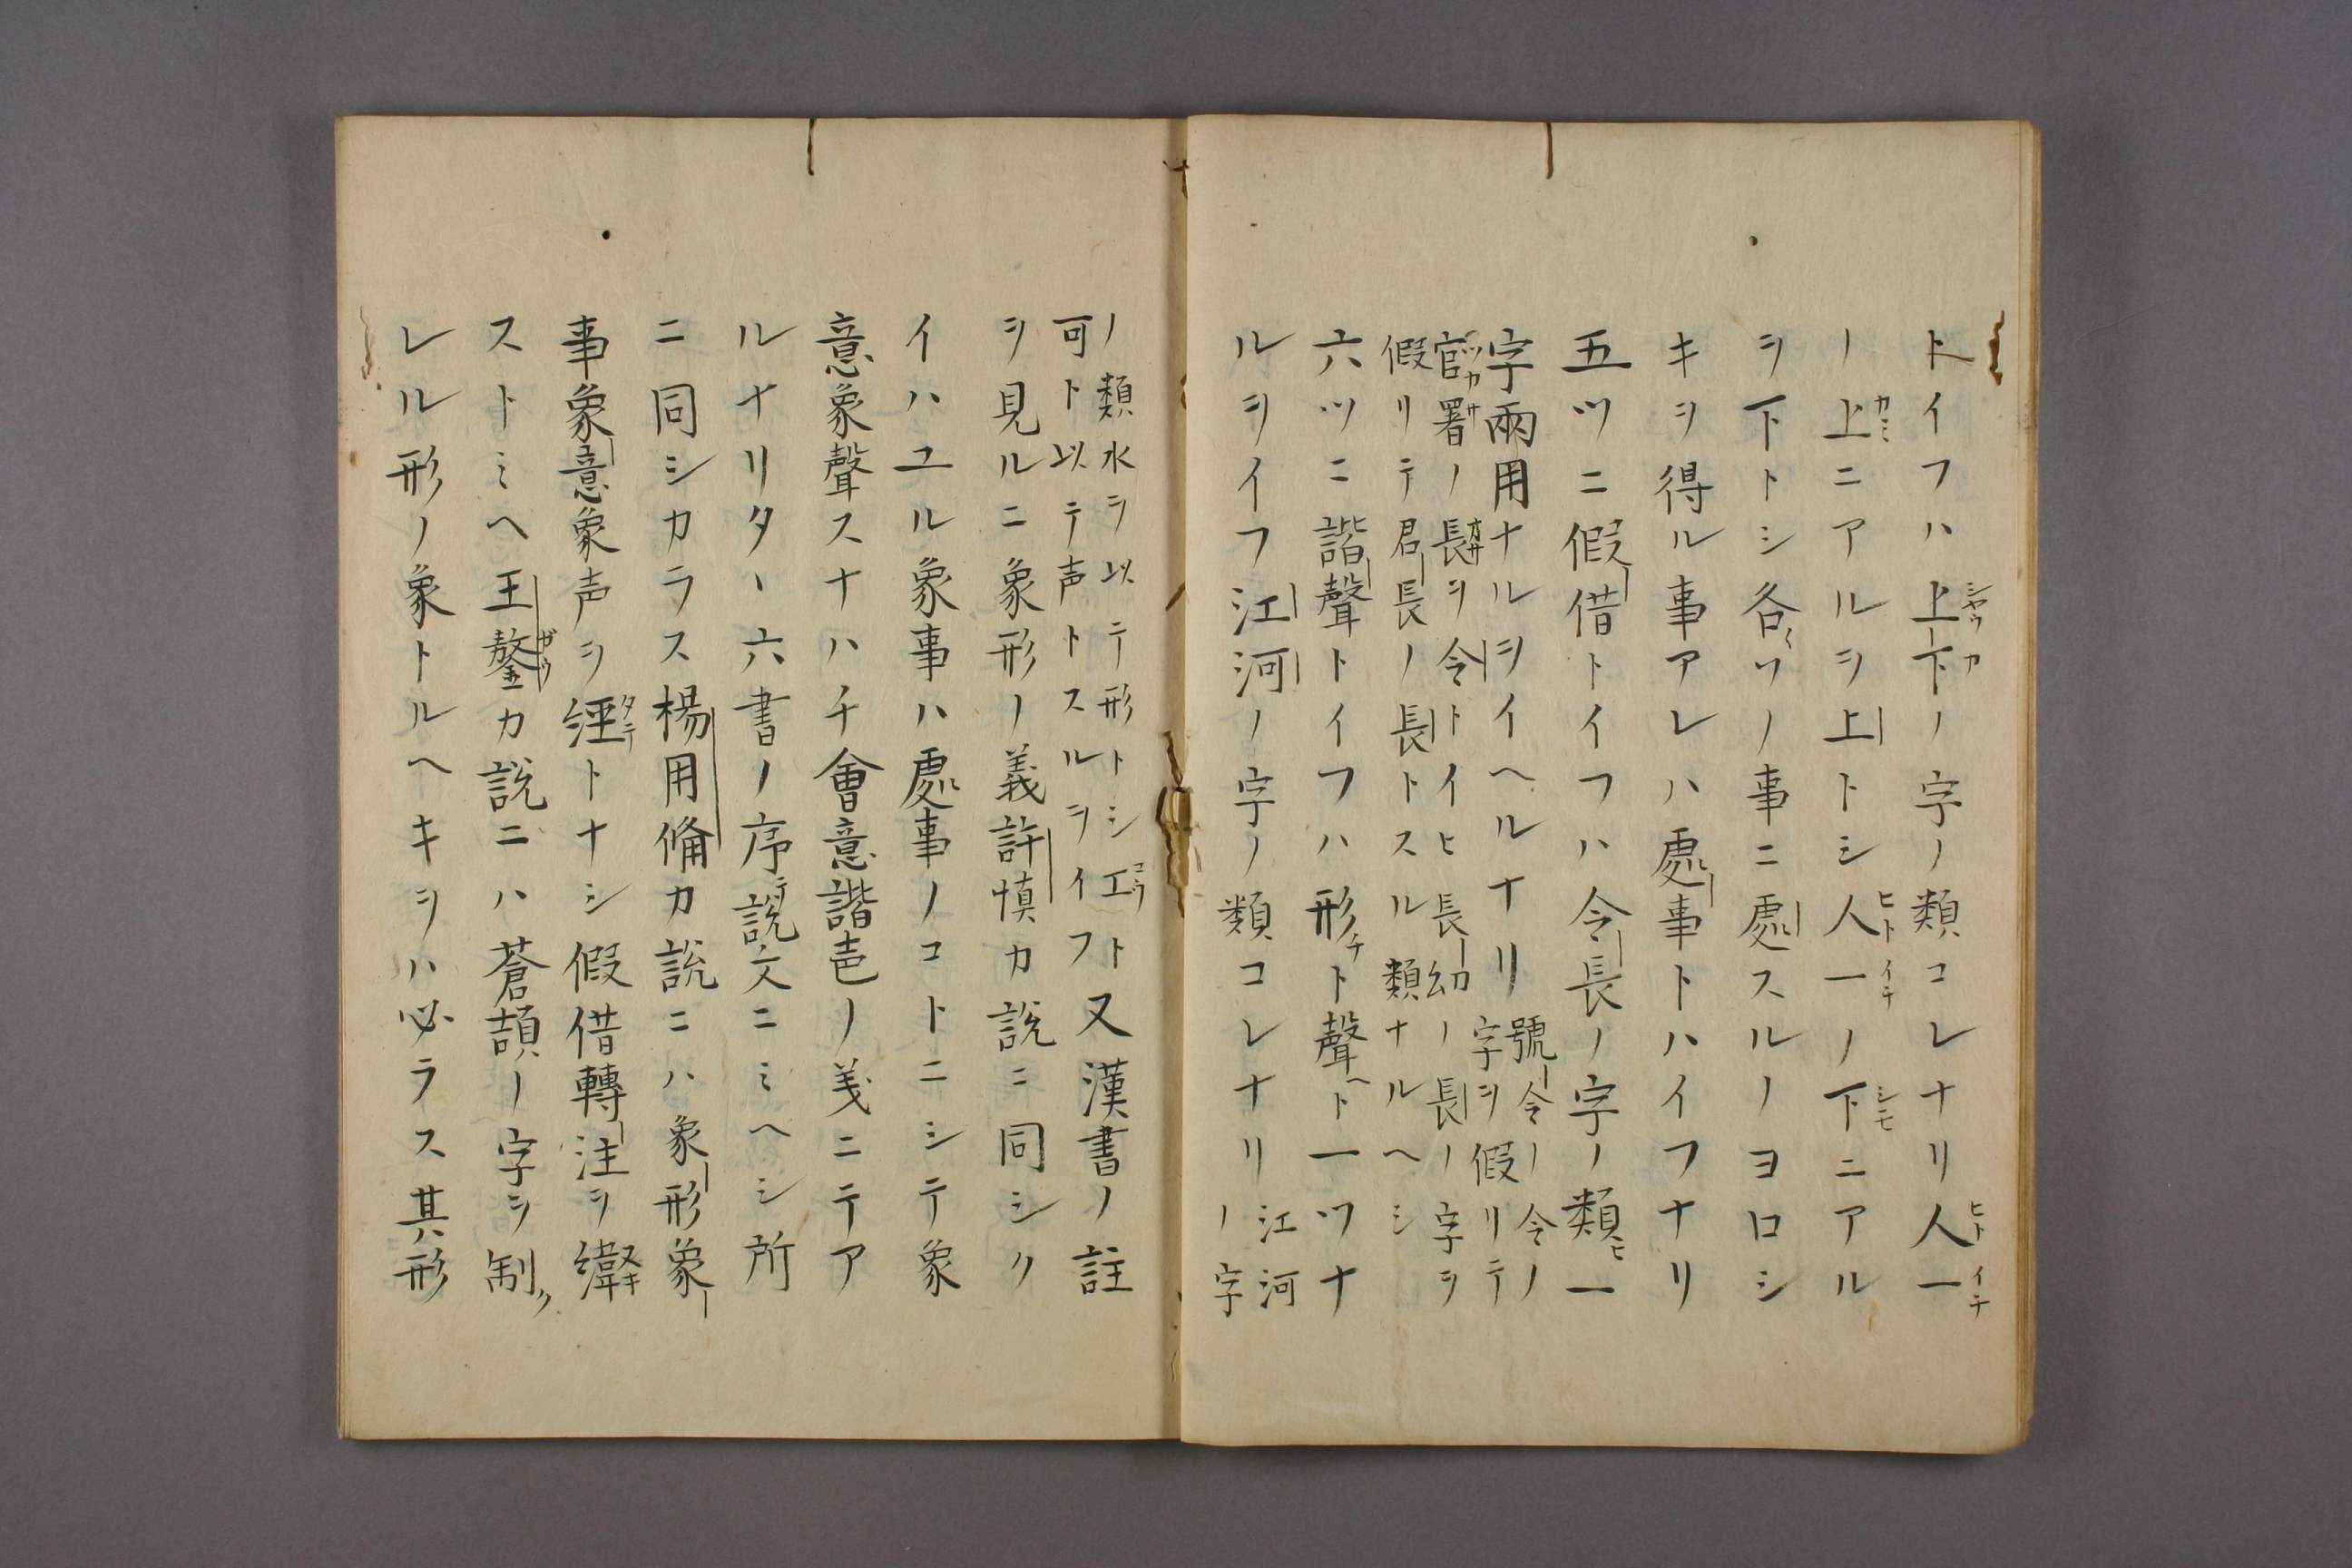 トイフハ上下ノ字ノ類コレナリ人一
ノ上ニアルヲ上トシ人一ノ下ニアル
ヲ下トシ各〱ソノ事ニ處スルノヨロシ
キヲ得ル事アレハ處事トハイフナリ
五ツニ假借トイフハ令長ノ字ノ類ヒ一
字兩用ナルヲイヘルナリ
號令ノ令ノ
字ヲ假リテ
官署ノ長ヲ令トイヒ長幼ノ長ノ字ヲ
假リテ君長ノ長トスル類ナルヘシ
六ツニ諧聲トイフハ形チト聲ヘト一ツナ
ルヲイフ江河ノ字ノ類コレナリ
江河
ノ字
ノ類水ヲ以テ形トシ工ト
可ト以テ声トスルヲイフ
又漢書ノ註
ヲ見ルニ象形ノ義許慎カ説ニ同シク
イハユル象事ハ處事ノコトニシテ象
意象聲スナハチ會意諧声ノ義ニテア
ルナリタヽ六書ノ序テ説文ニミヘシ所
ニ同シカラス楊用脩カ説ニハ象形象
事象意象声ヲ経トナシ假借轉注ヲ緯
ストミヘ王鏊カ説ニハ蒼頡ノ字ヲ制ク
レル形ノ象トルヘキヲハ必ラス其形